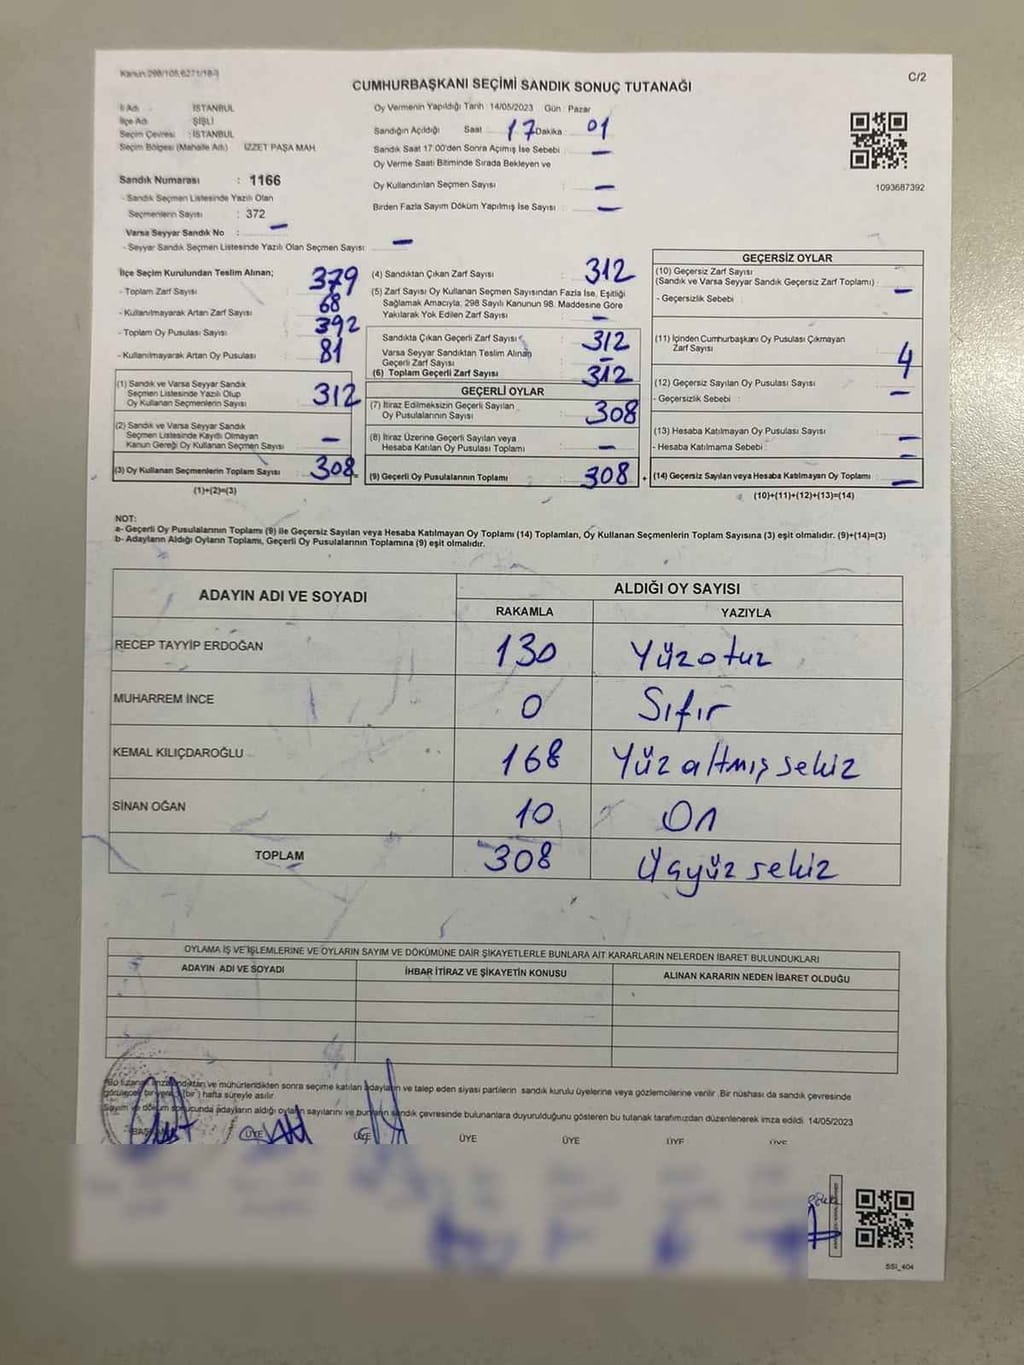 Kanun 298/105,6271/18-1
CUMHURBAŞKANI SEÇİMİ SANDIK SONUÇ TUTANAĞI
C/2
İl Adı : İSTANBUL
İlçe Adı : ŞİŞLİ
Seçim Çevresi : İSTANBUL
Seçim Bölgesi (Mahalle Adı) İZZET PAŞA MAH.
Oy Vermenin Yapıldığı Tarih 14/05/2023 Gün : Pazar
Sandığın Açıldığı Saat 17 Dakika 01
Sandık Saat 17:00'den Sonra Açılmış İse Sebebi : —
Oy Verme Saati Bitiminde Sırada Bekleyen ve
Oy Kullandırılan Seçmen Sayısı : —
Birden Fazla Sayım Döküm Yapılmış İse Sayısı : —
1093687392
Sandık Numarası : 1166
- Sandık Seçmen Listesinde Yazılı Olan
Seçmenlerin Sayısı : 372
Varsa Seyyar Sandık No : —
- Seyyar Sandık Seçmen Listesinde Yazılı Olan Seçmen Sayısı : —
İlçe Seçim Kurulundan Teslim Alınan;
- Toplam Zarf Sayısı : 379
- Kullanılmayarak Artan Zarf Sayısı : 68
- Toplam Oy Pusulası Sayısı : 392
- Kullanılmayarak Artan Oy Pusulası : 81
(1) Sandık ve Varsa Seyyar Sandık
Seçmen Listesinde Yazılı Olup
Oy Kullanan Seçmenlerin Sayısı : 312
(2) Sandık ve Varsa Seyyar Sandık
Seçmen Listesinde Kayıtlı Olmayan
Kanun Gereği Oy Kullanan Seçmen Sayısı : —
(3) Oy Kullanan Seçmenlerin Toplam Sayısı : 308
(1)+(2)=(3)
(4) Sandıktan Çıkan Zarf Sayısı : 312
(5) Zarf Sayısı Oy Kullanan Seçmen Sayısından Fazla İse, Eşitliği
Sağlamak Amacıyla, 298 Sayılı Kanunun 98. Maddesine Göre
Yakılarak Yok Edilen Zarf Sayısı : —
Sandıkta Çıkan Geçerli Zarf Sayısı : 312
Varsa Seyyar Sandıktan Teslim Alınan
Geçerli Zarf Sayısı : —
(6) Toplam Geçerli Zarf Sayısı : 312
GEÇERLİ OYLAR
(7) İtiraz Edilmeksizin Geçerli Sayılan
Oy Pusulalarının Sayısı : 308
(8) İtiraz Üzerine Geçerli Sayılan veya
Hesaba Katılan Oy Pusulası Toplamı : —
(9) Geçerli Oy Pusulalarının Toplamı : 308 +
GEÇERSİZ OYLAR
(10) Geçersiz Zarf Sayısı
(Sandık ve Varsa Seyyar Sandık Geçersiz Zarf Toplamı) : —
- Geçersizlik Sebebi :
(11) İçinden Cumhurbaşkanı Oy Pusulası Çıkmayan
Zarf Sayısı : 4
(12) Geçersiz Sayılan Oy Pusulası Sayısı : —
- Geçersizlik Sebebi :
(13) Hesaba Katılmayan Oy Pusulası Sayısı : —
- Hesaba Katılmama Sebebi : —
(14) Geçersiz Sayılan veya Hesaba Katılmayan Oy Toplamı : —
(10)+(11)+(12)+(13)=(14)
NOT:
a- Geçerli Oy Pusulalarının Toplamı (9) ile Geçersiz Sayılan veya Hesaba Katılmayan Oy Toplamı (14) Toplamları, Oy Kullanan Seçmenlerin Toplam Sayısına (3) eşit olmalıdır. (9)+(14)=(3)
b- Adayların Aldığı Oyların Toplamı, Geçerli Oy Pusulalarının Toplamına (9) eşit olmalıdır.
ADAYIN ADI VE SOYADI
ALDIĞI OY SAYISI
RAKAMLA YAZIYLA
RECEP TAYYİP ERDOĞAN 130 Yüzotuz
MUHARREM İNCE 0 Sıfır
KEMAL KILIÇDAROĞLU 168 Yüz altmış sekiz
SİNAN OĞAN 10 On
TOPLAM 308 Üçyüz sekiz
OYLAMA İŞ VE İŞLEMLERİNE VE OYLARIN SAYIM VE DÖKÜMÜNE DAİR ŞİKAYETLERLE BUNLARA AİT KARARLARIN NELERDEN İBARET BULUNDUKLARI
ADAYIN ADI VE SOYADI İHBAR İTİRAZ VE ŞİKAYETİN KONUSU ALINAN KARARIN NEDEN İBARET OLDUĞU
Bu tutanak imzalandıktan ve mühürlendikten sonra seçime katılan adayların ve talep eden siyasi partilerin sandık kurulu üyelerine veya gözlemcilerine verilir. Bir nüshası da sandık çevresinde
görülecek bir yere (bir) hafta süreyle asılır.
Sayım ve döküm sonucunda adayların aldığı oyların sayılarını ve bunların sandık çevresinde bulunanlara duyurulduğunu gösteren bu tutanak tarafımızdan düzenlenerek imza edildi. 14/05/2023
ÜYE ÜYE ÜYE ÜYE ÜYE ÜYE
SSI_404